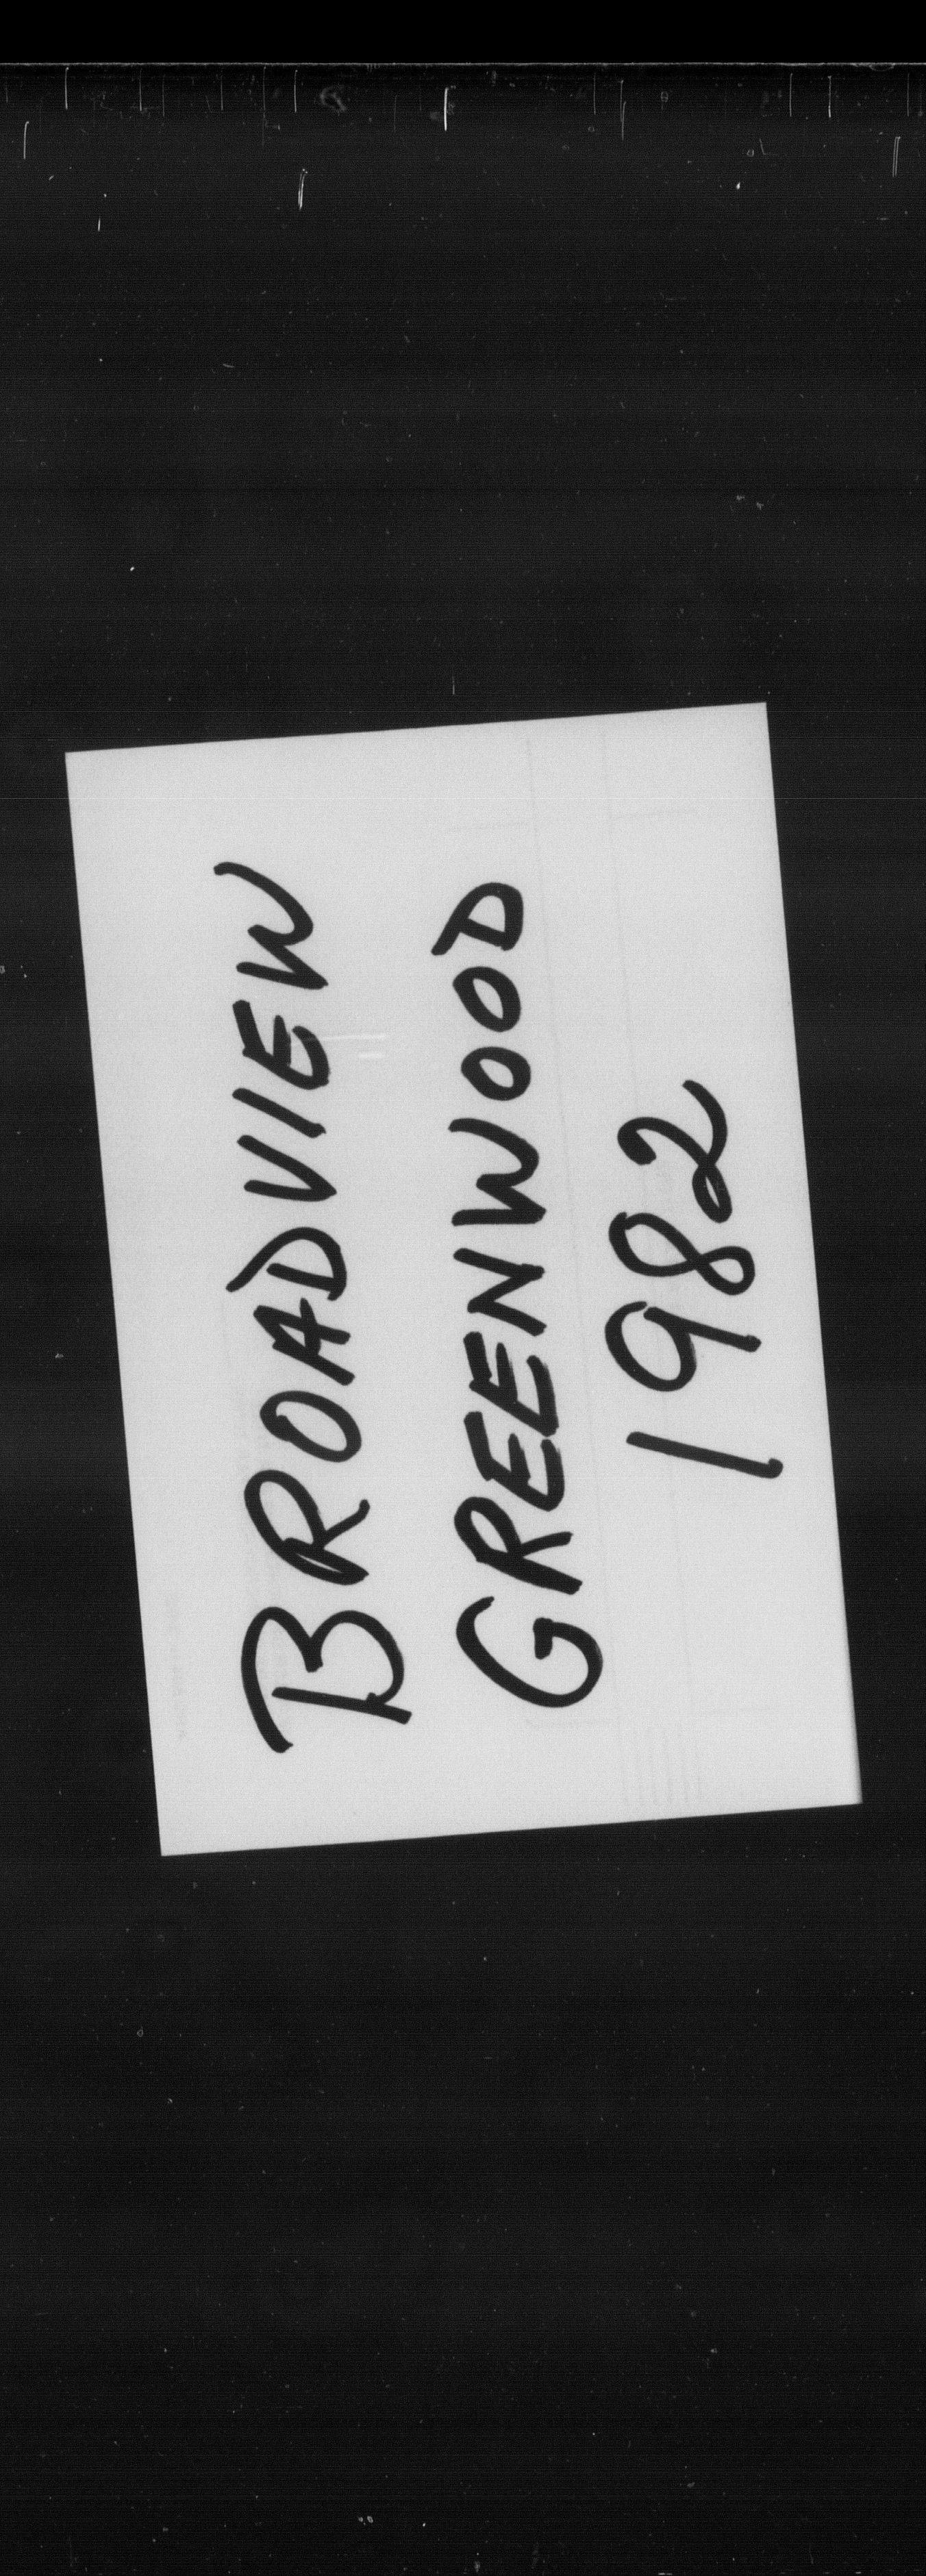 BROADVIEW
GREENWOOD
1982